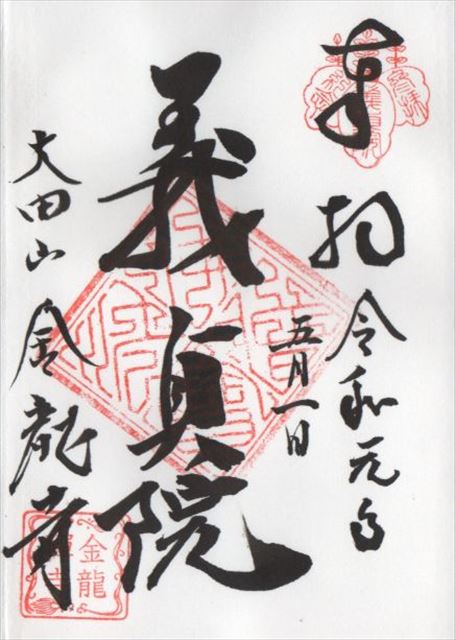 奉拝
令和元年
五月一日
義貞院
大田山金龍寺
金龍